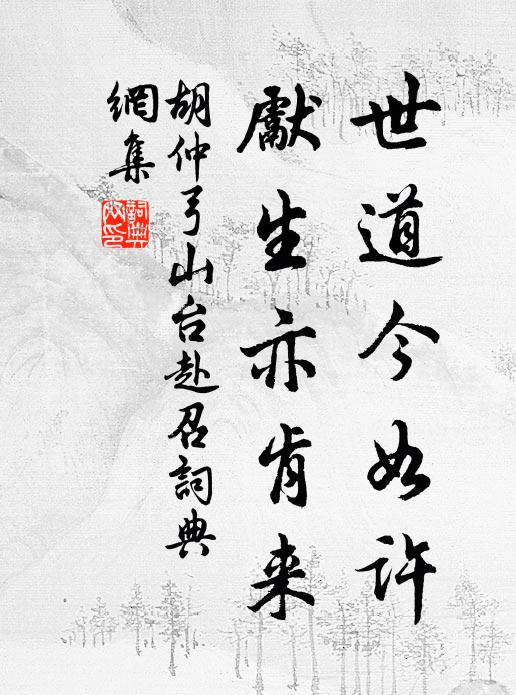 世道今如许
獻生亦肯来
胡仲弓山台赴召詞典
網集
詞典
网印